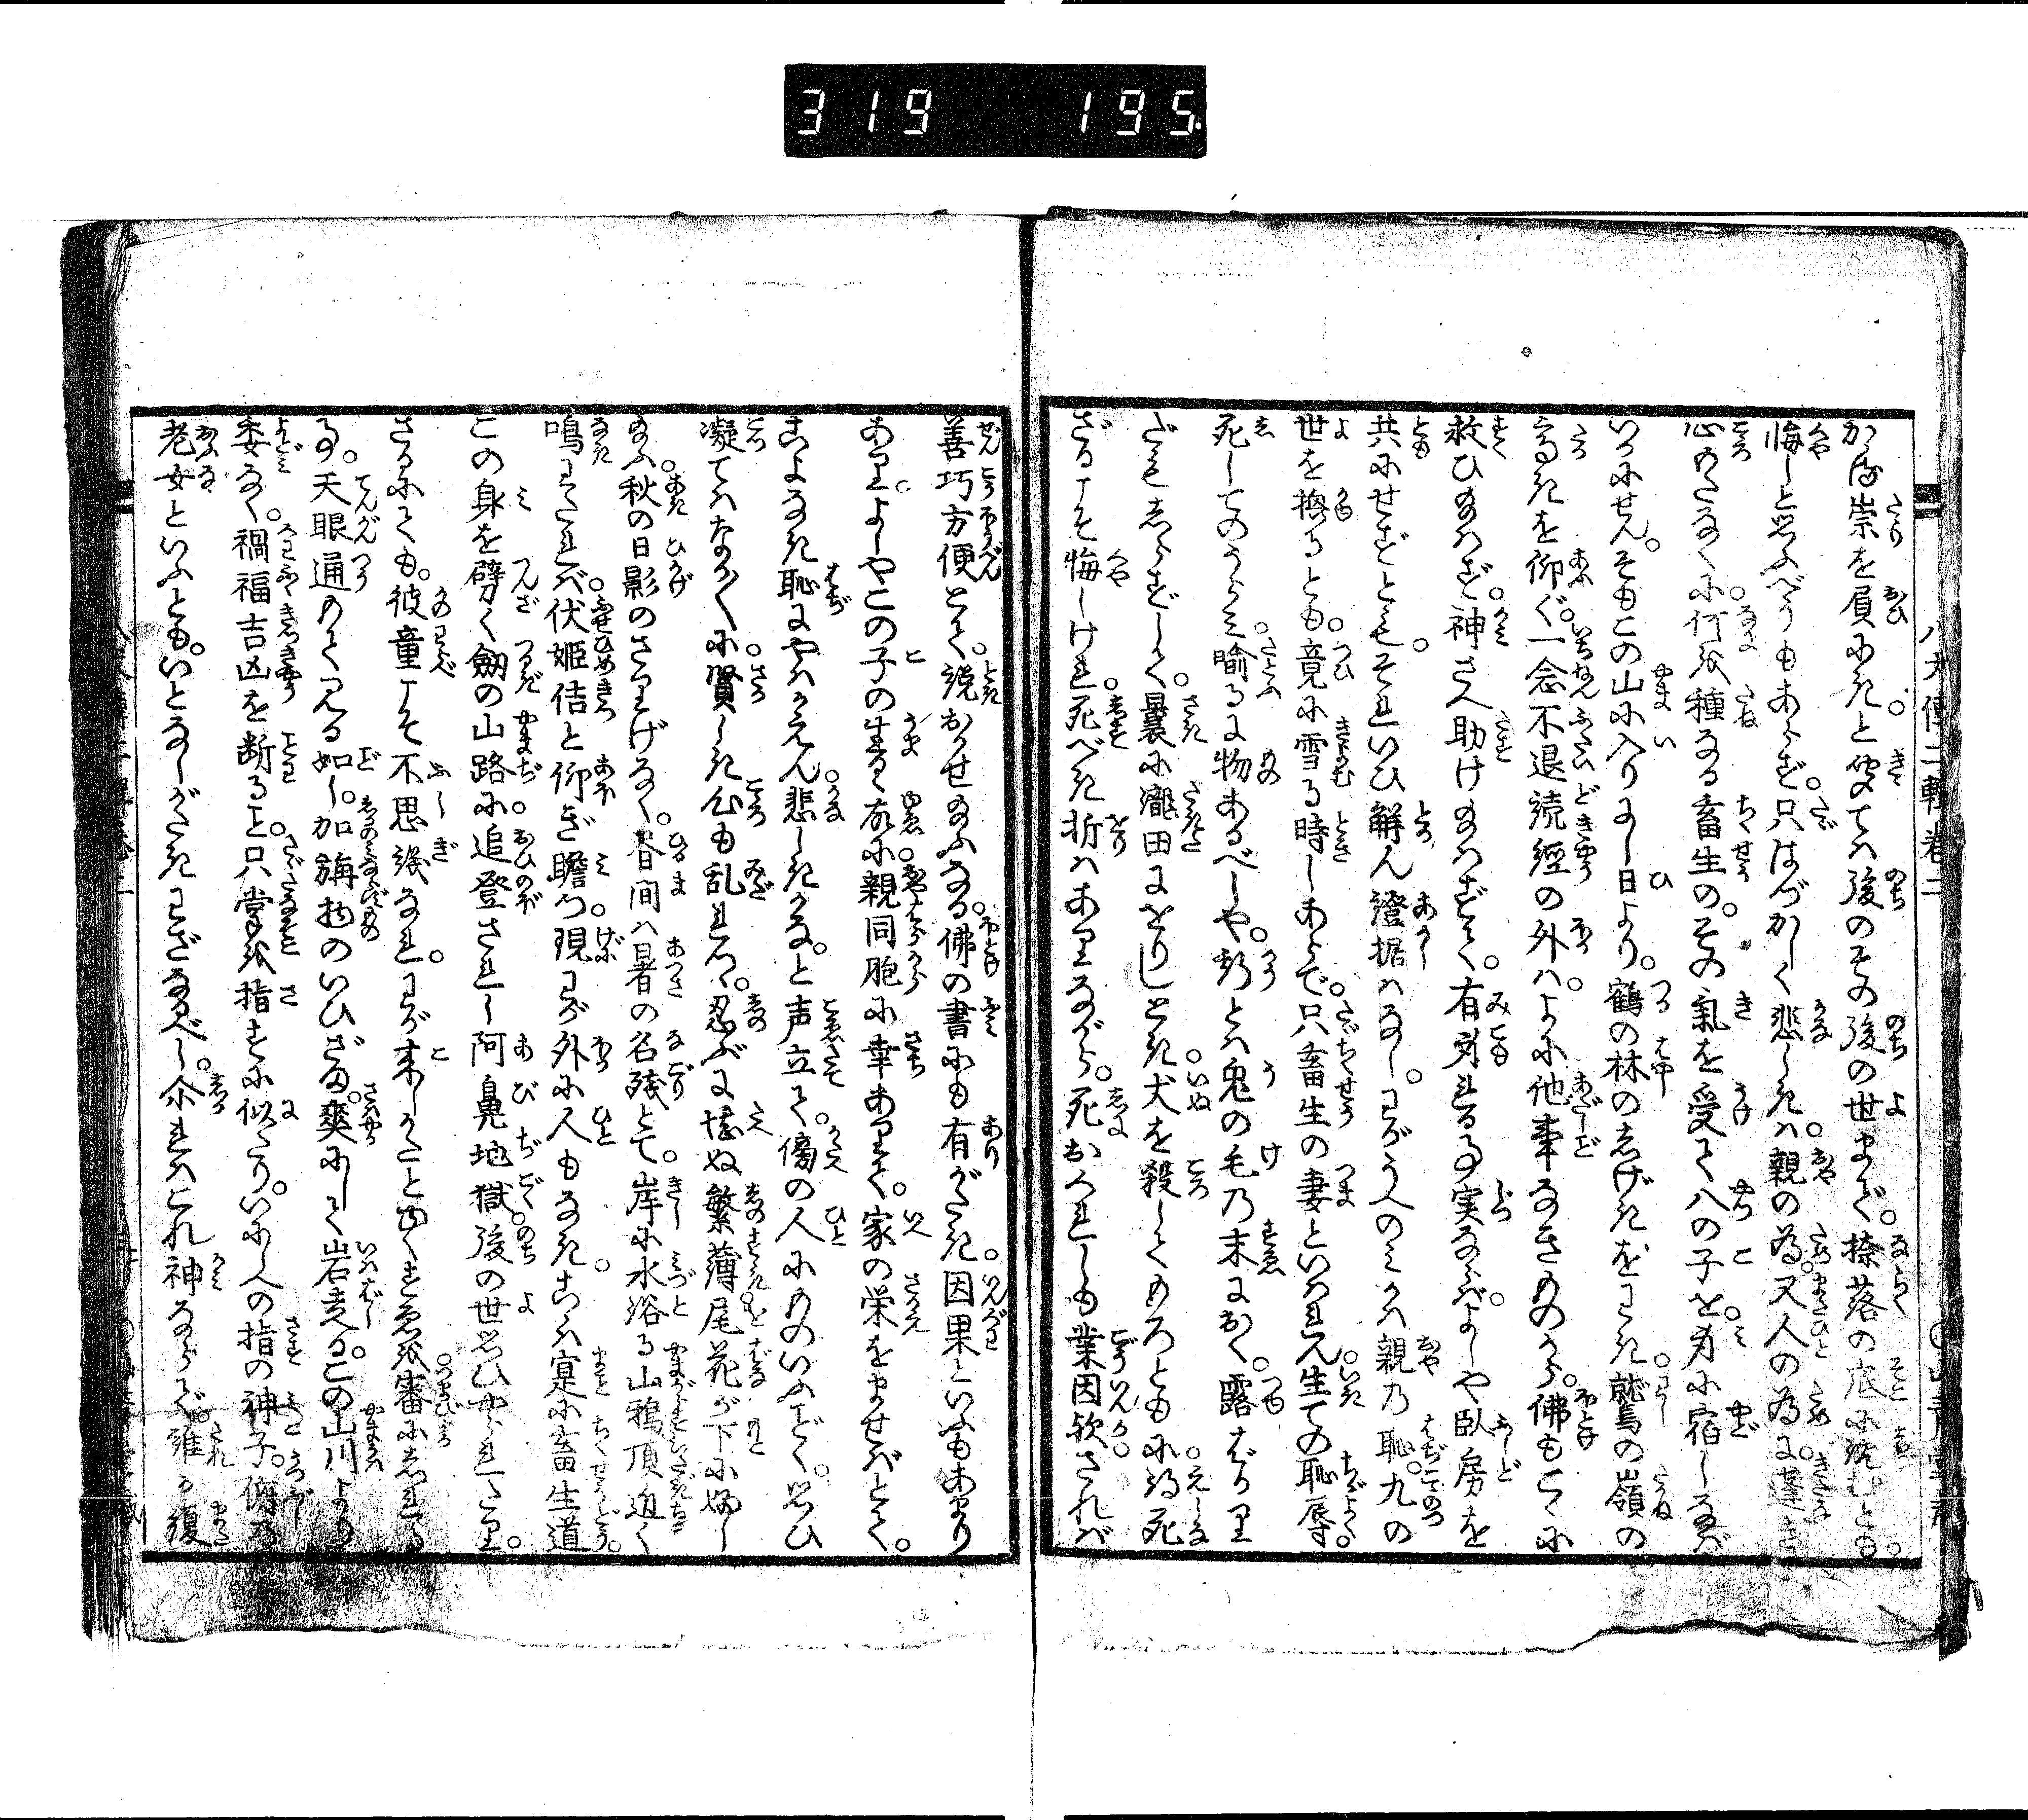 319 195.
かゝる崇を負にきと聞ては後のその後の世まで。捺落の底に沈むとも。
悔しと思ふべうもあらず。只はづかしく悲しきは。親の為。又人の為に蓬き
心のきたなくに。何を種なる畜生の。その氣を受て八の子を。身に宿しなば
いかにせん。そもこの山に入りにし日より。鶴の林のしげきをわき。鷲の嶺の
高きを仰ぐ。一念不退読經の外は。よに他事なきものから。佛もこゝに
救ひ給はず。神さへ助け給はずて。有身れる事実ならば。よしや臥房を
共にせずとも。それいひ解ん證据はなし。わがうへのみかは親の恥。九の
世を換るとも。竟に雪る時しあらで。只畜生の妻といはれん。生ての恥辱。
死してのうらみ喩るに物あるべしや。かうとは兎の毛の末におく。露ばかり
だもしらずして。曩に瀧田にをりしとき。犬を殺してもろともに得死
ざるこそ悔しけれ。死べき折はありながら。死おくれしも業因欤。されば
善巧方便とて。説おかせ給ふなる。佛の書にも有がたき。因果といふもあまり
あり。よしやこの子の生るゝ故に。親同胞に幸ありて。家の栄をませばとて。
こよなき恥にやはかえん。悲しきかな。と声立て。傍の人にものいふごとく。思ひ
凝てはなか〱に。賢しき心も乱れつゝ。忍ぶに堪ぬ繁薄。尾花が下に婦し
給ふ。秋の日影のさりげなく。昼間は暑の名殘とて。岸に水浴る山鴉頂近く
鳴わたれば。伏姫佶と仰ぎ瞻つ。現わが外に人もなき。こゝは寔に畜生道。
この身を劈く劒の山路に。追登されし阿鼻地獄。後の世思ひやられたり。
さるにても。彼童こそ不思議なれ。わが来しかたと由くすゑを。審にしれる
事。天眼通のごとくみる如し。加旃物のいひざま。爽にして岩走る。この山川より
委なく。禍福吉凶を断ること。只掌を指すに似たり。いにしへ人の指の神子。傍の
老女といふとも。いとなしがたきわざなるべし。尒れはこれ神ならで。誰か復
八犬傳二輯巻二